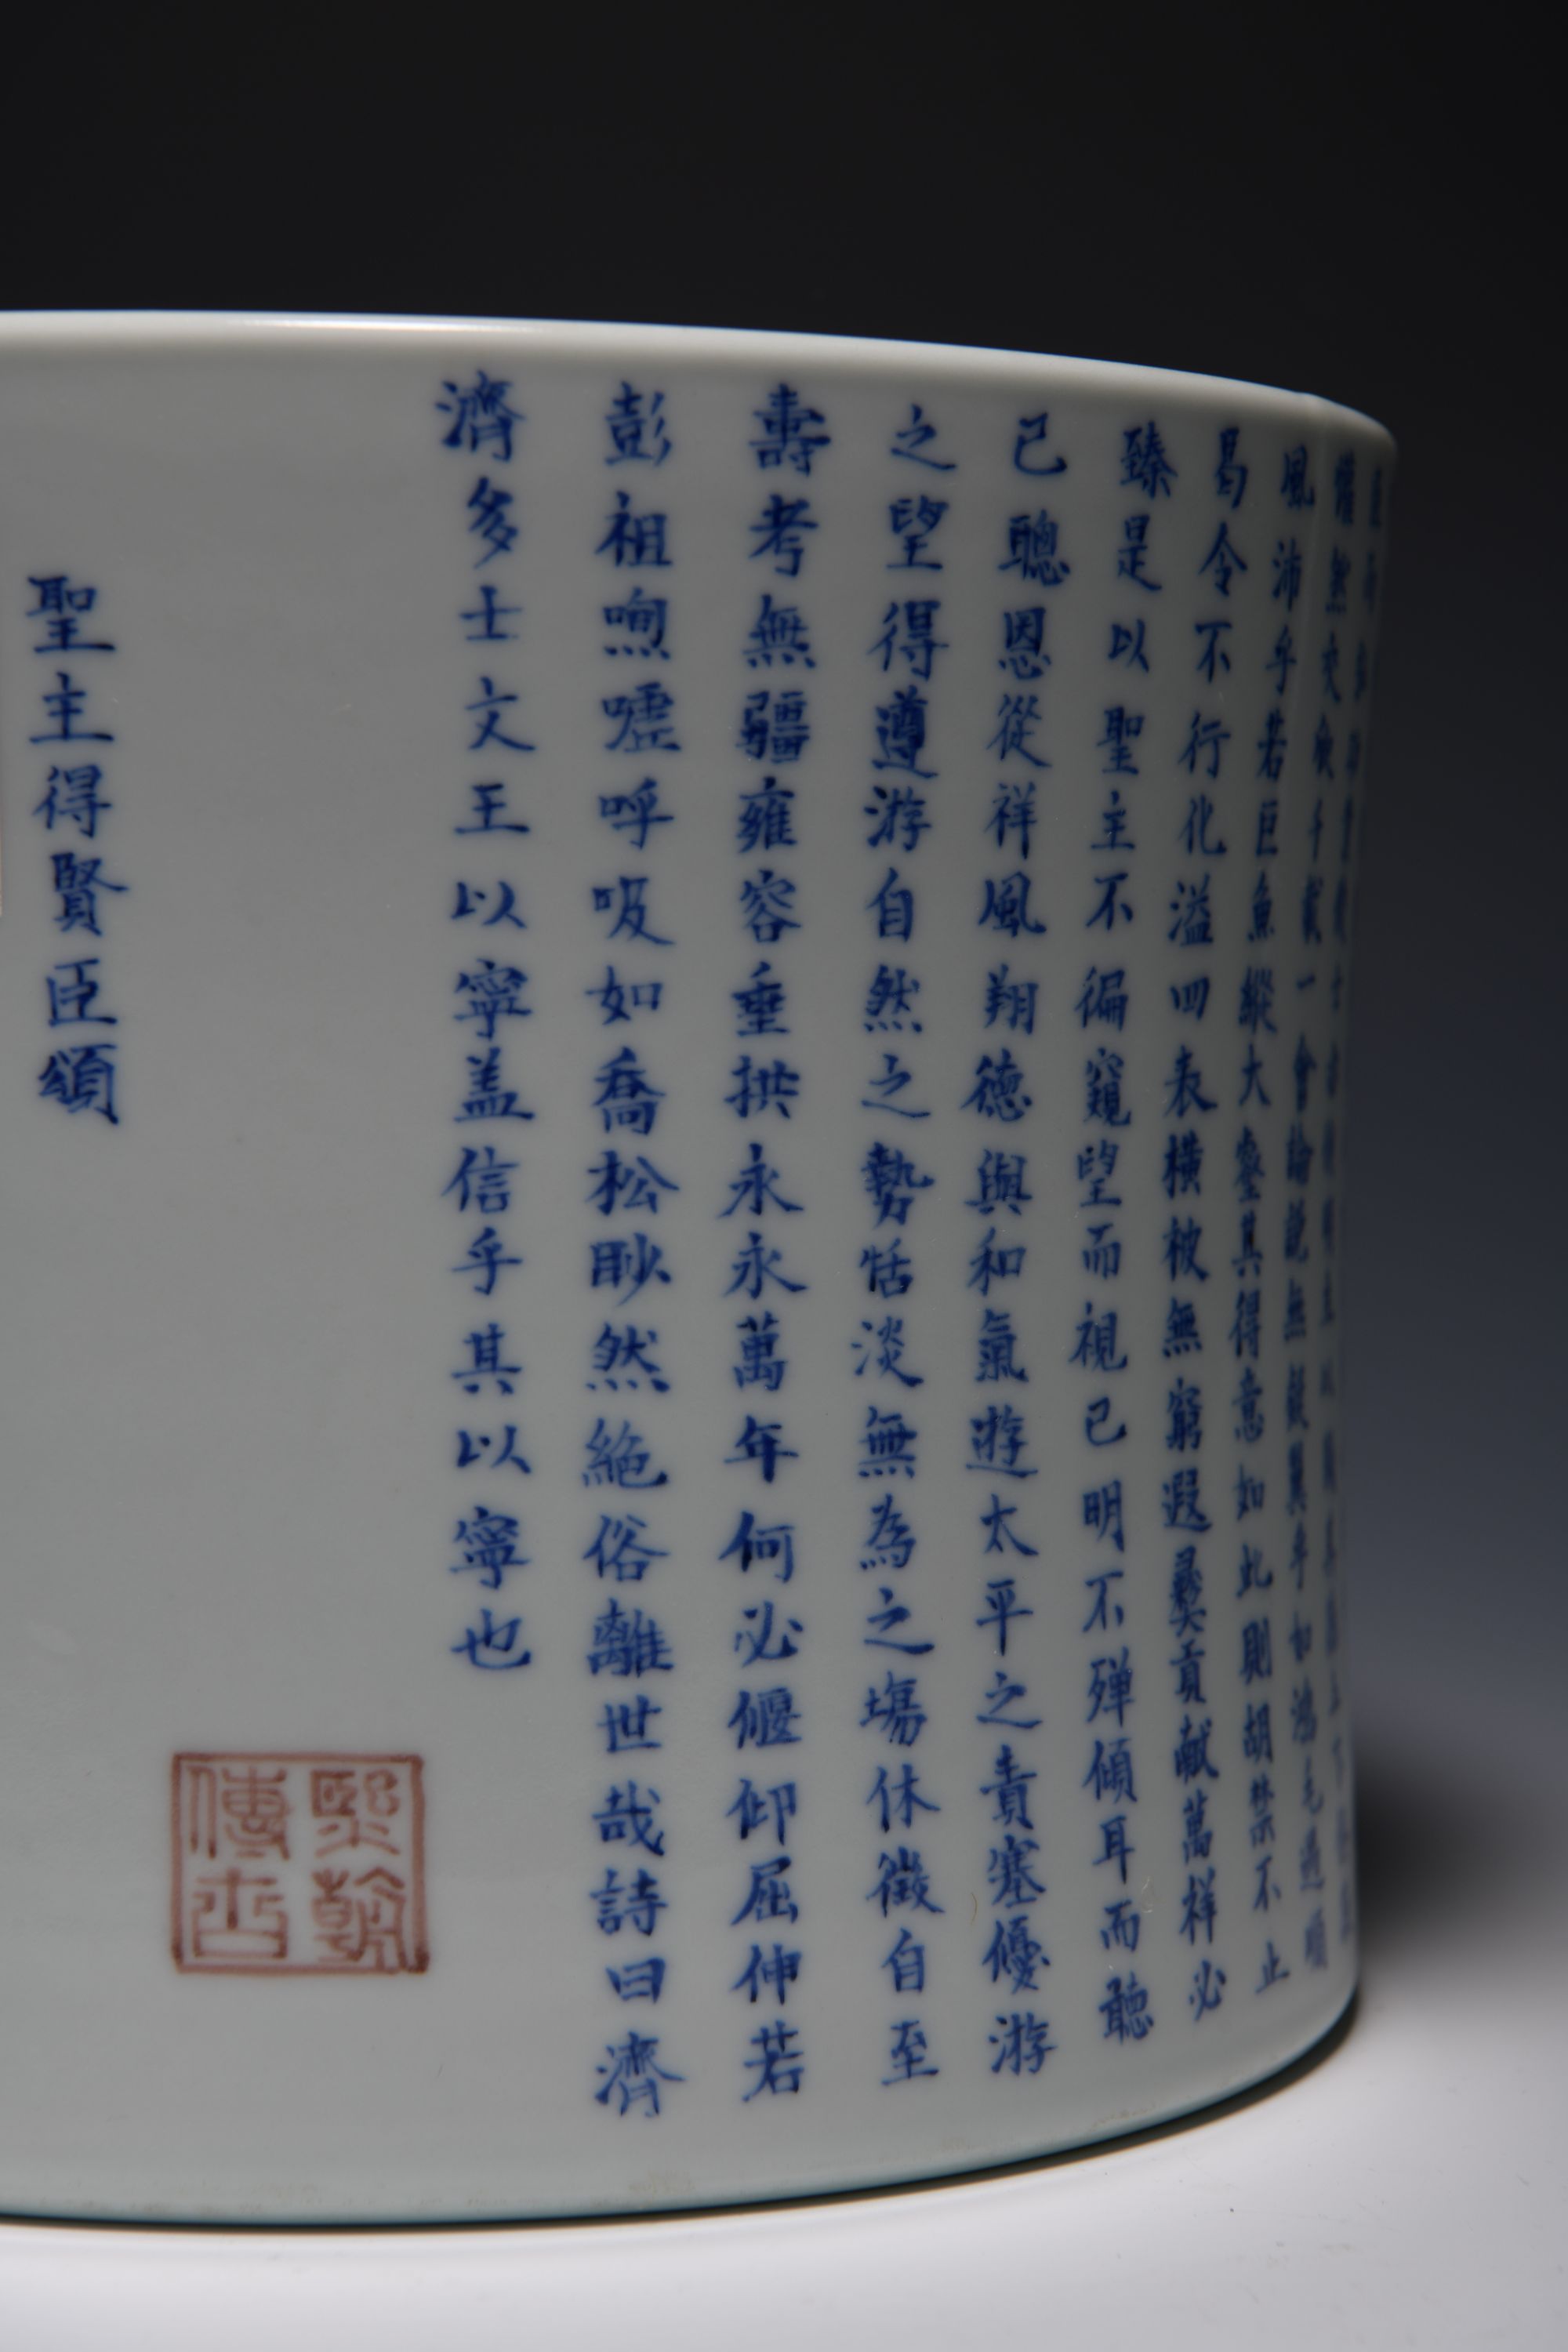 懽然交欣千載一會論說無疑翼乎如鴻毛遇順
風沛乎若巨魚縱大壑其得意如此則胡禁不止
曷令不行化溢四表橫被無窮遐彝貢献萬祥必
臻是以聖主不徧窺望而視已明不殫傾耳而聽
已聰恩從祥風翔德與和氣遊太平之責塞優游
之望得遵游自然之勢恬淡無為之塲休徵自至
壽考無疆雍容垂拱永永萬年何必偃仰屈伸若
彭祖喣噓呼吸如喬松眇然絕俗離世哉詩曰濟
濟多士文王以寧盖信乎其以寧也
熙朝
傳古
聖主得賢臣頌